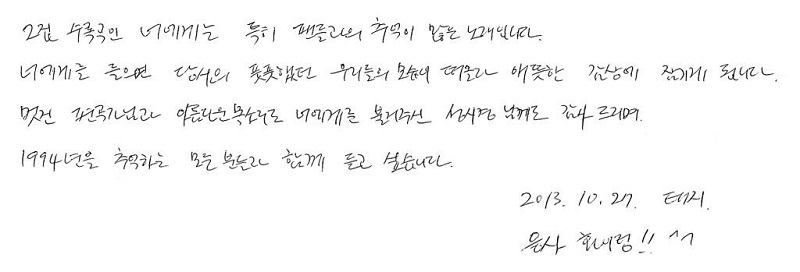 2집 수록곡인 너에게는 특히 팬들과의 추억이 많은 노래입니다.
너에게를 들으면 당시의 풋풋했던 우리들의 모습이 떠올라 애틋한 감상에 잠기게 됩니다.
멋진 편곡가님과 아름다운 목소리로 너에게를 불러주신 성시경 님께도 감사 드리며
1994년을 추억하는 모든 분들과 함께 듣고 싶습니다.
2013. 10. 27. 태지.
응사 화이팅!! ^^